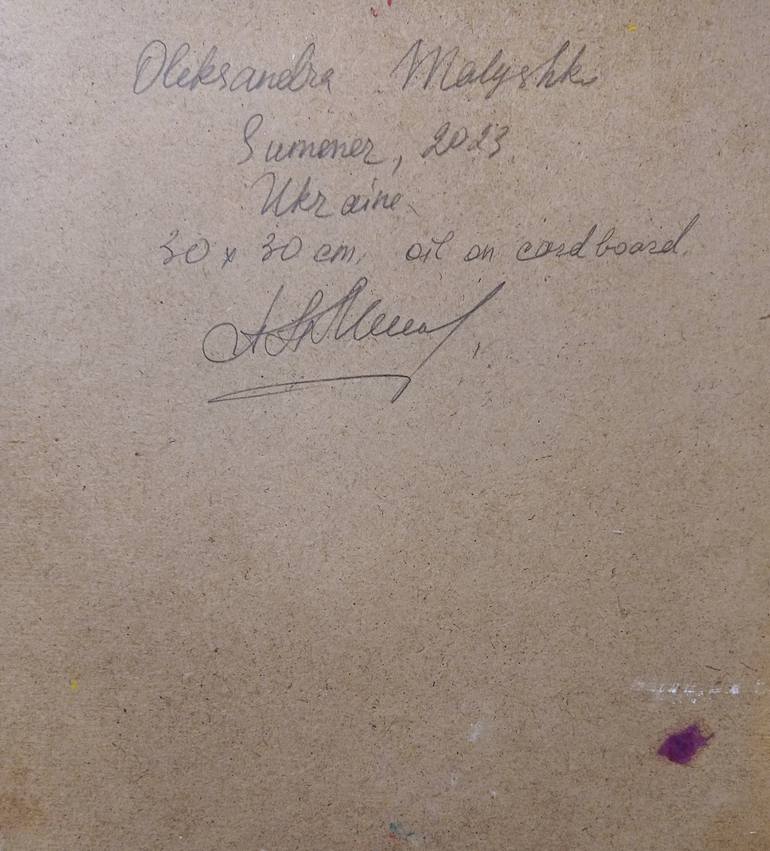 Oleksandra Malyshko
Summer, 2023
Ukraine
30 x 30 cm, oil on cardboard.